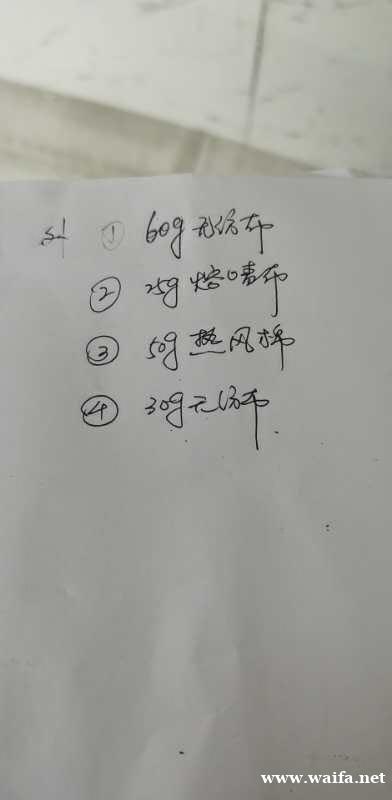 外 ① 60g无纺布
② 25g熔喷布
③ 50g热风棉
④ 30g无纺布
www.waifa.net